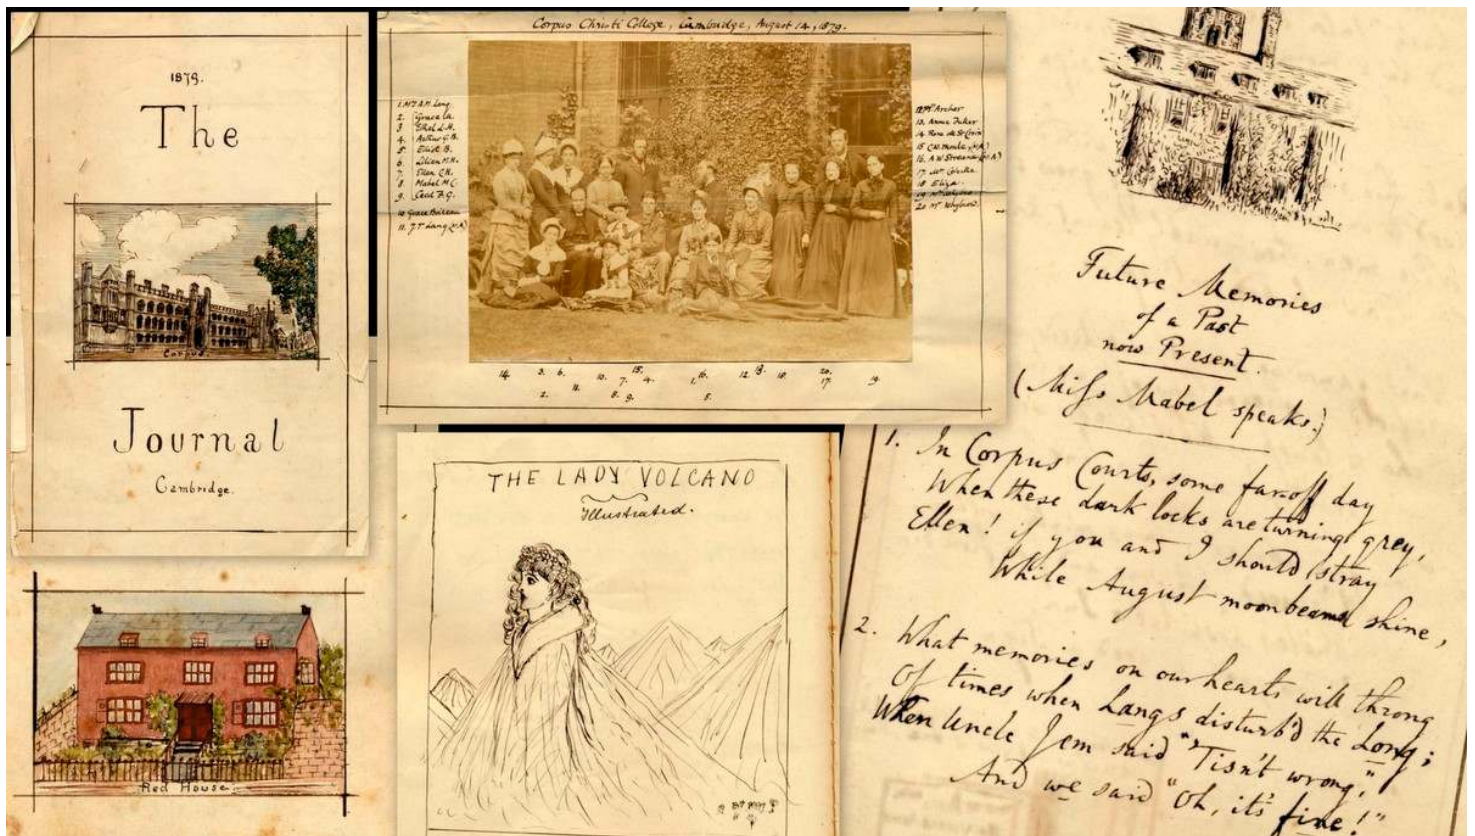 1879.
The
Corpus.
Journal
Cambridge.
Red House.
Corpus Christi College, Cambridge, August 14, 1879.
1. Mrs A.H. Lang.
2. Grace
3. Ethel L.H.
4. Arthur G.B.
5. Eliot B.
6. Lilian M.H.
7. Ellen C.H.
8. Mabel M.C.
9. Cecil F.G.
10. Grace
11. J.T. Lang (M.A)
12. Mr Archer
13. Annie
14. Rose de St Croix
15. C.W. Moule, (M.A)
16. A W Streane (M.A)
17. Mr
18. Eliza
19. Mrs
20. Mr Whybrow.
14. 3. 6. 10. 15. 16. 12. 13. 18. 20. 19.
11. 7. 4. 1. 17.
2. 8. 9. 5.
THE LADY VOLCANO
Illustrated.
Future Memories
of a Past
now Present.
(Miss Mabel speaks.)
1. In Corpus Courts, some far-off day
When these dark locks are turning grey,
Ellen! if you and I should stray
While August moonbeams shine,
2. What memories on our hearts will throng
Of times when Langs disturb'd the Long;
When Uncle Jem said "Tisn't wrong,"
And we said "Oh, it's fine!"